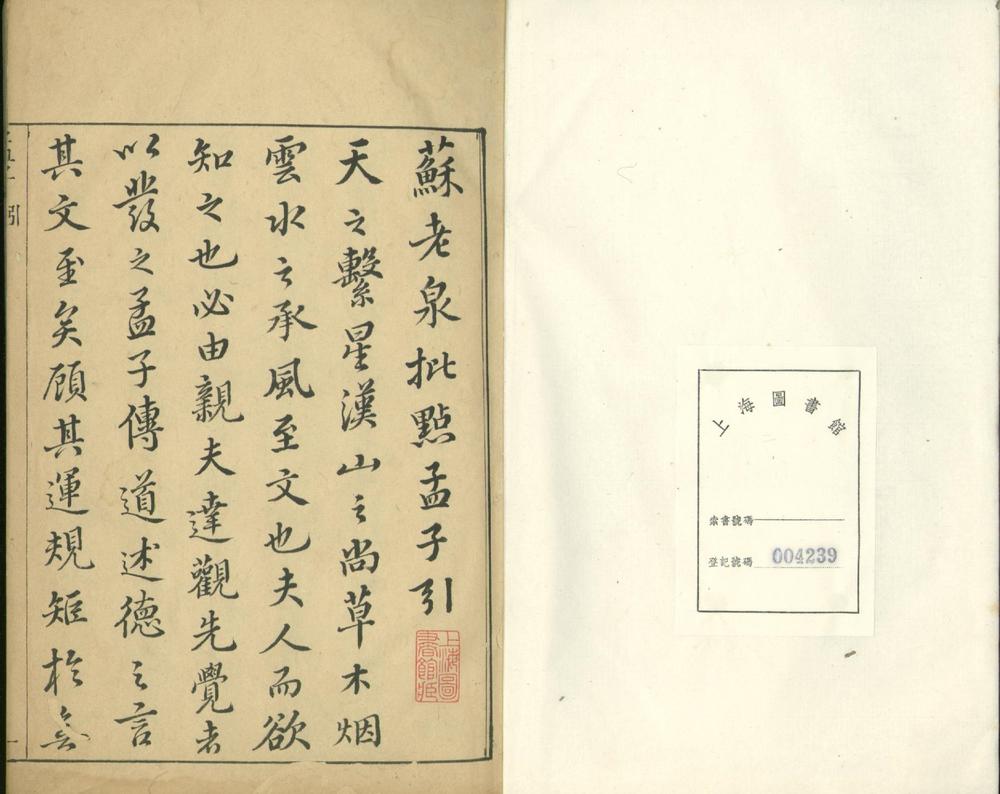 蘇老泉批點孟子引
天之繫星漢山之尚草木烟
雲水之承風至文也夫人而欲
知之也必由親夫達觀先覺者
以發之孟子傳道述德之言
其文至矣顧其運規矩於無
引
一
上海圖書館藏
上海圖書館
索書號碼
登記號碼 004239